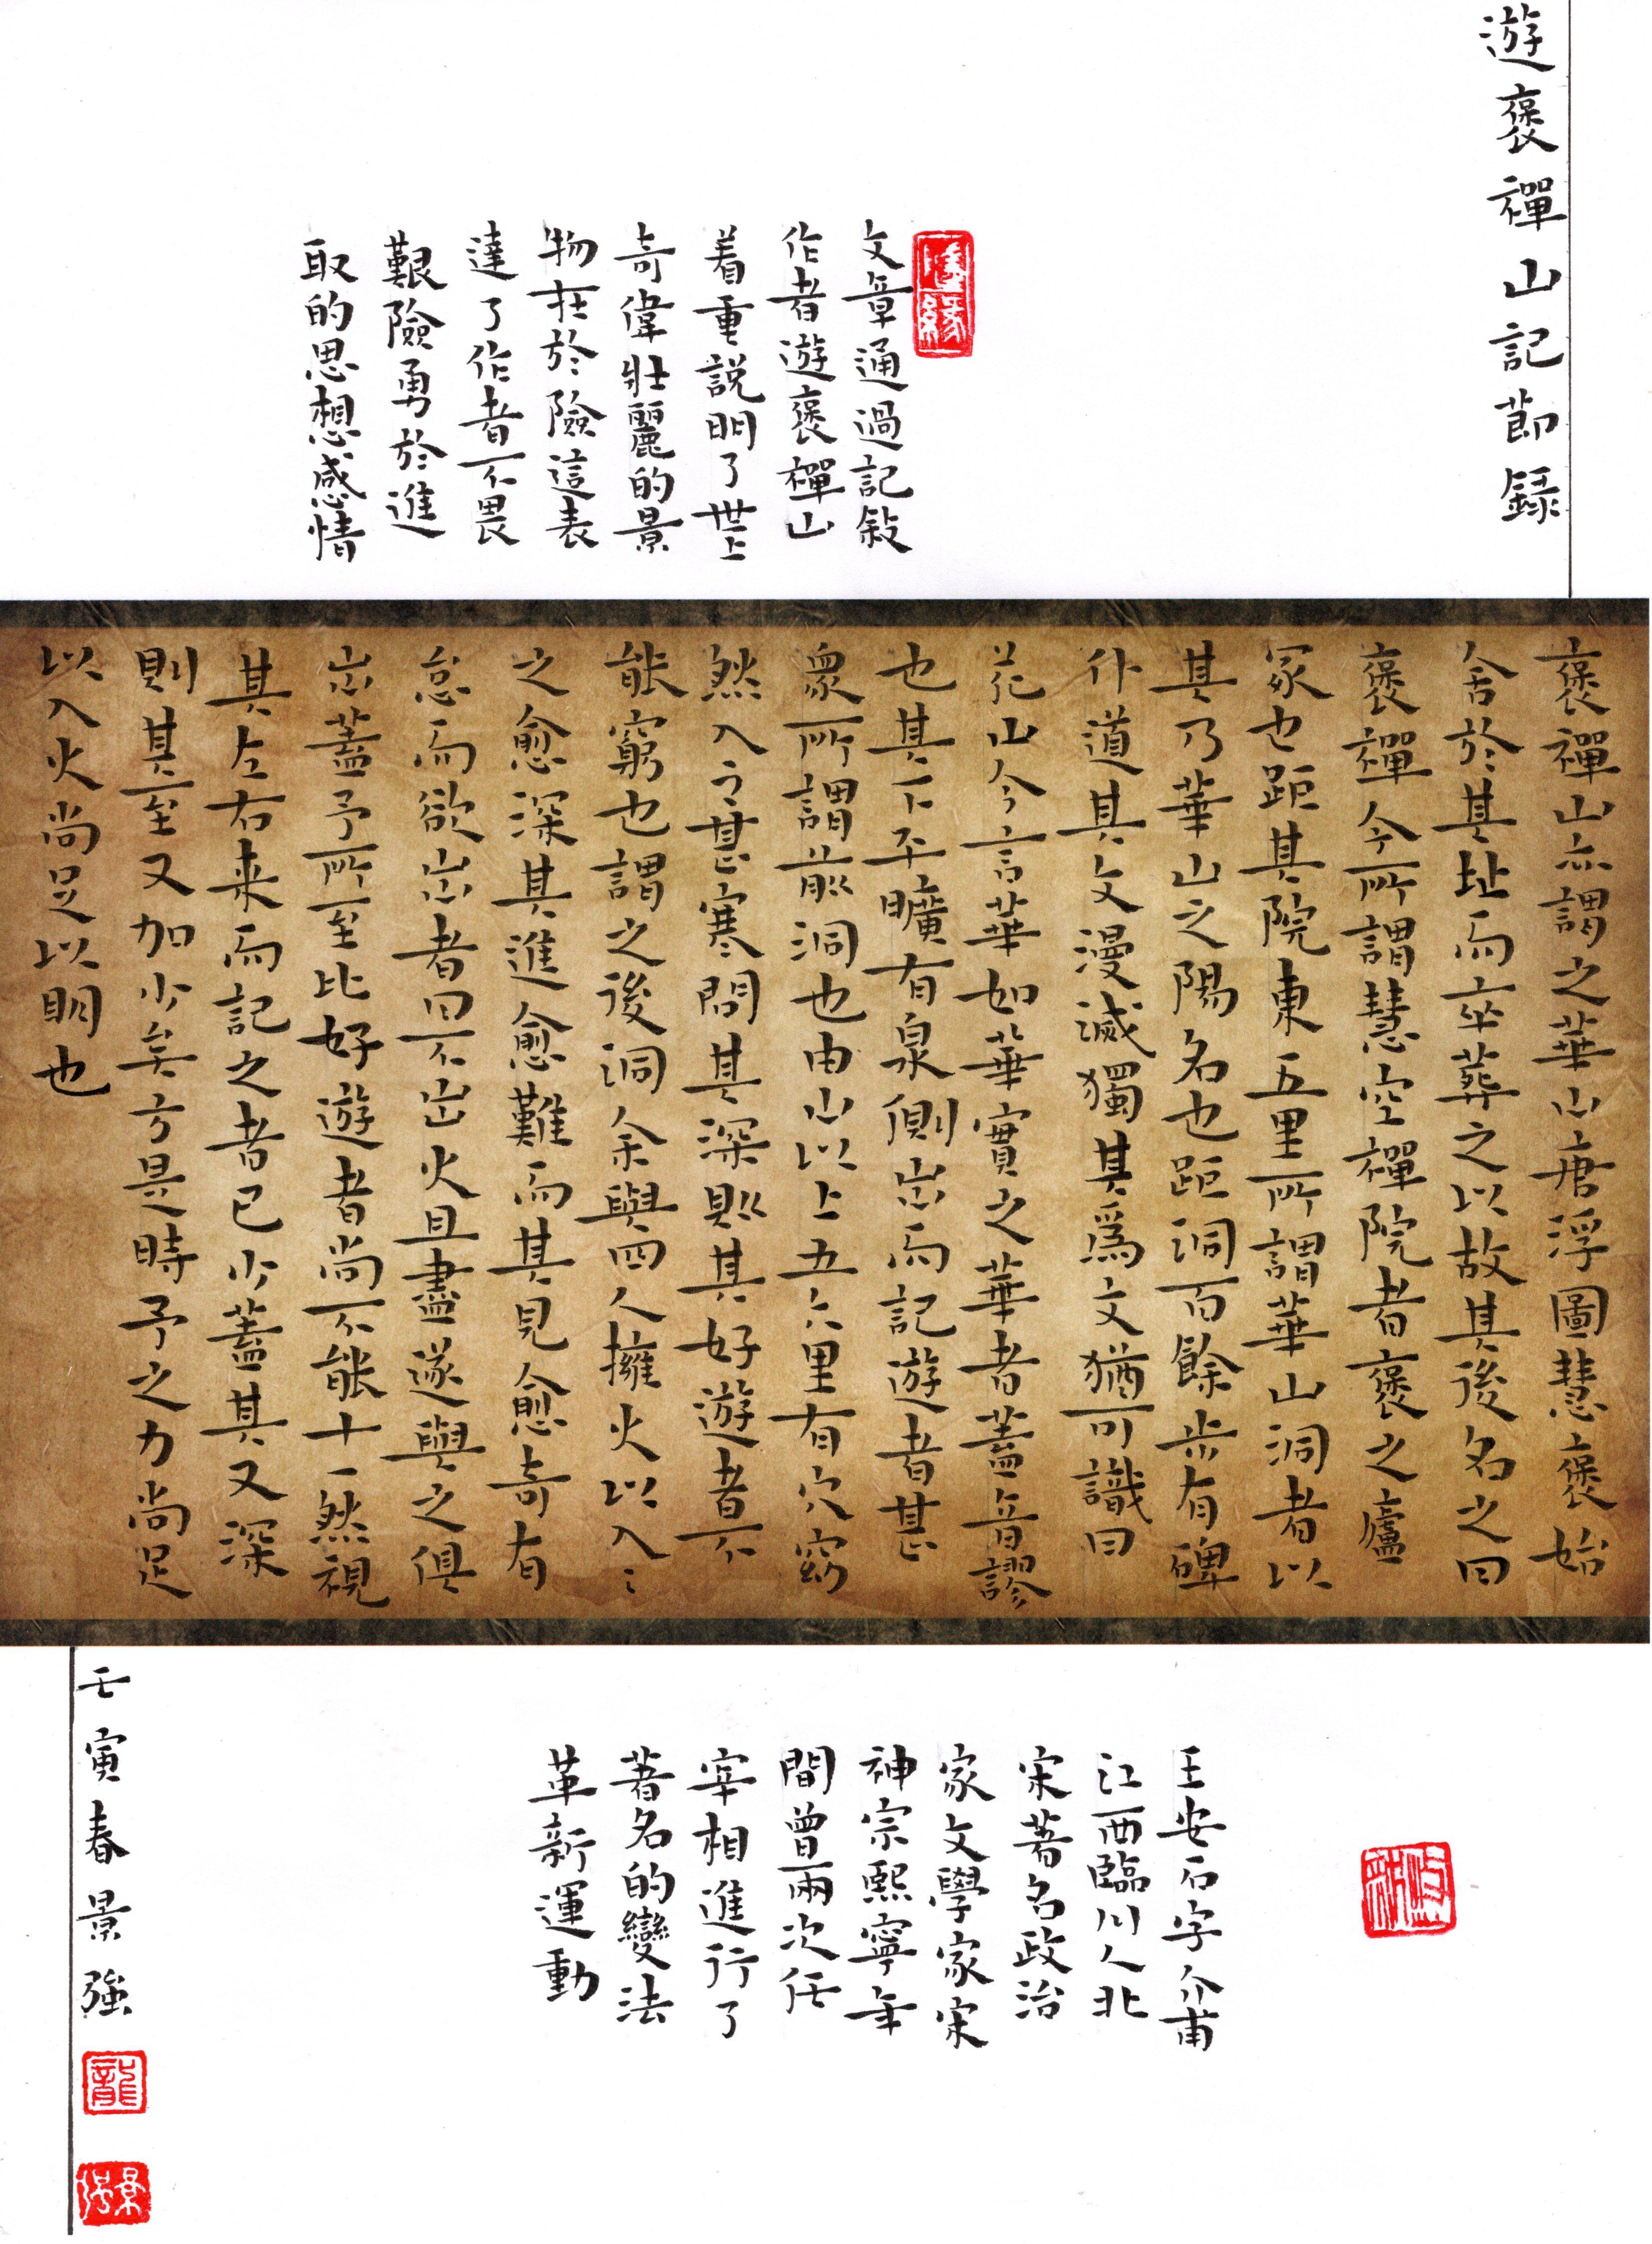 遊褒禪山記節録
文章通過記敍
作者遊褒禪山
着重説明了世上
奇偉壯麗的景
物在於險這表
達了作者不畏
艱險勇於進
取的思想感情
褒禪山亦謂之華山唐浮圖慧褒始
舍於其址而卒葬之以故其後名之曰
褒禪今所謂慧空禪院者褒之廬
冢也距其院東五里所謂華山洞者以
其乃華山之陽名也距洞百餘步有碑
仆道其文漫滅獨其爲文猶可識曰
花山今言華如華實之華者蓋音謬
也其下平曠有泉側出而記遊者甚
衆所謂前洞也由山以上五六里有穴窈
然入之甚寒問其深則其好遊者不
能窮也謂之後洞余與四人擁火以入々
之愈深其進愈難而其見愈奇有
怠而欲出者曰不出火且盡遂與之俱
出蓋予所至比好遊者尚不能十一然視
其左右来而記之者已少蓋其又深
則其至又加少矣方是時予之力尚足
以入火尚足以明也
王安石字介甫
江西臨川人北
宋著名政治
家文學家宋
神宗熙寧年
間曾兩次任
宰相進行了
著名的變法
革新運動
壬寅春景強
龍